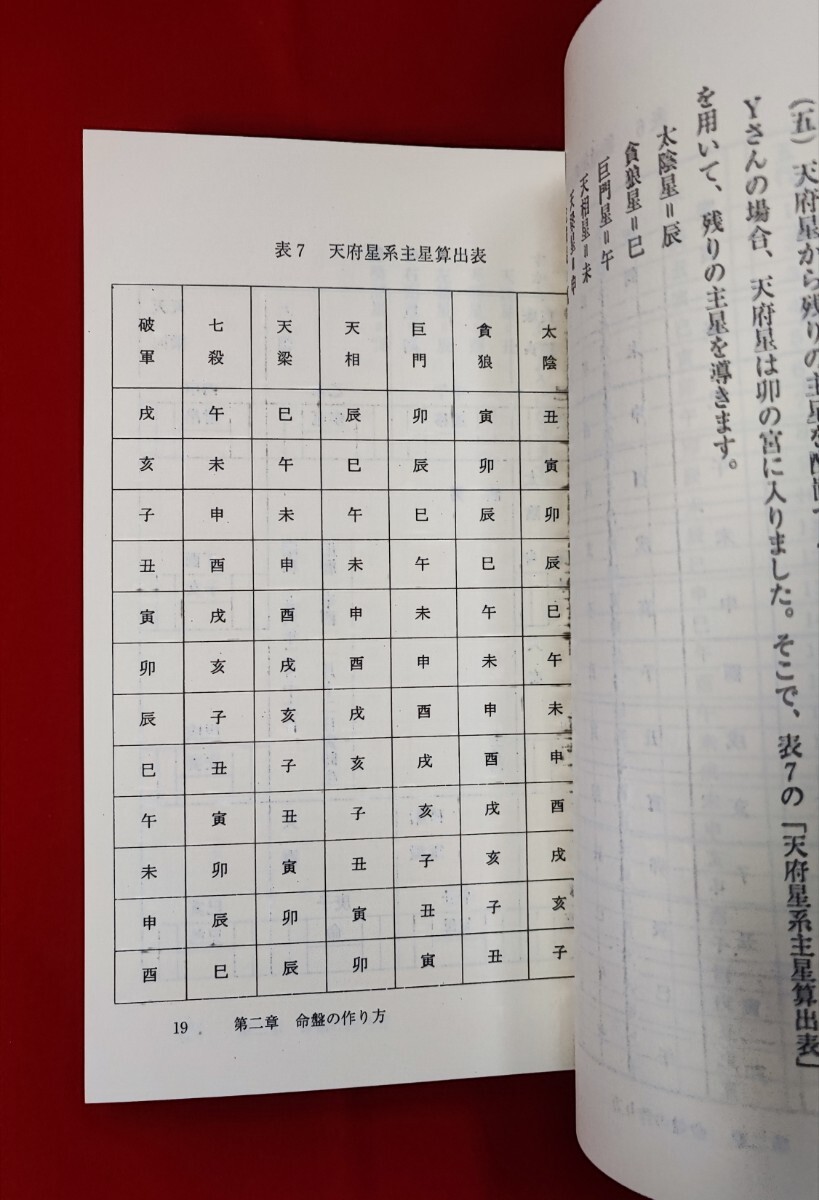 (五) 天府星から残りの主星を配置
Yさんの場合、天府星は卯の宮に入りました。そこで、表7の「天府星系主星算出表」
を用いて、残りの主星を導きます。
太陰星=辰
貪狼星=巳
巨門星=午
天相星=未
天梁星=申
表7 天府星系主星算出表
破軍 七殺 天梁 天相 巨門 貪狼 太陰
戌 午 巳 辰 卯 寅 丑
亥 未 午 巳 辰 卯 寅
子 申 未 午 巳 辰 卯
丑 酉 申 未 午 巳 辰
寅 戌 酉 申 未 午 巳
卯 亥 戌 酉 申 未 午
辰 子 亥 戌 酉 申 未
巳 丑 子 亥 戌 酉 申
午 寅 丑 子 亥 戌 酉
未 卯 寅 丑 子 亥 戌
申 辰 卯 寅 丑 子 亥
酉 巳 辰 卯 寅 丑 子
19 第二章 命盤の作り方